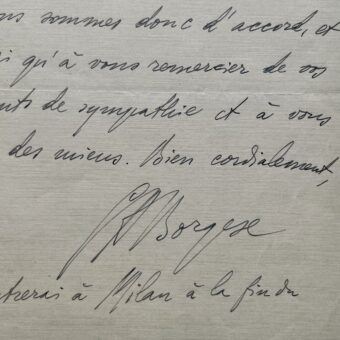 ns sommes donc d'accord, et
i qu'à vous remercier de vos
nts de sympathie et à vous
des miens. Bien cordialement,
GABorgese
trerai à Milan à la fin du